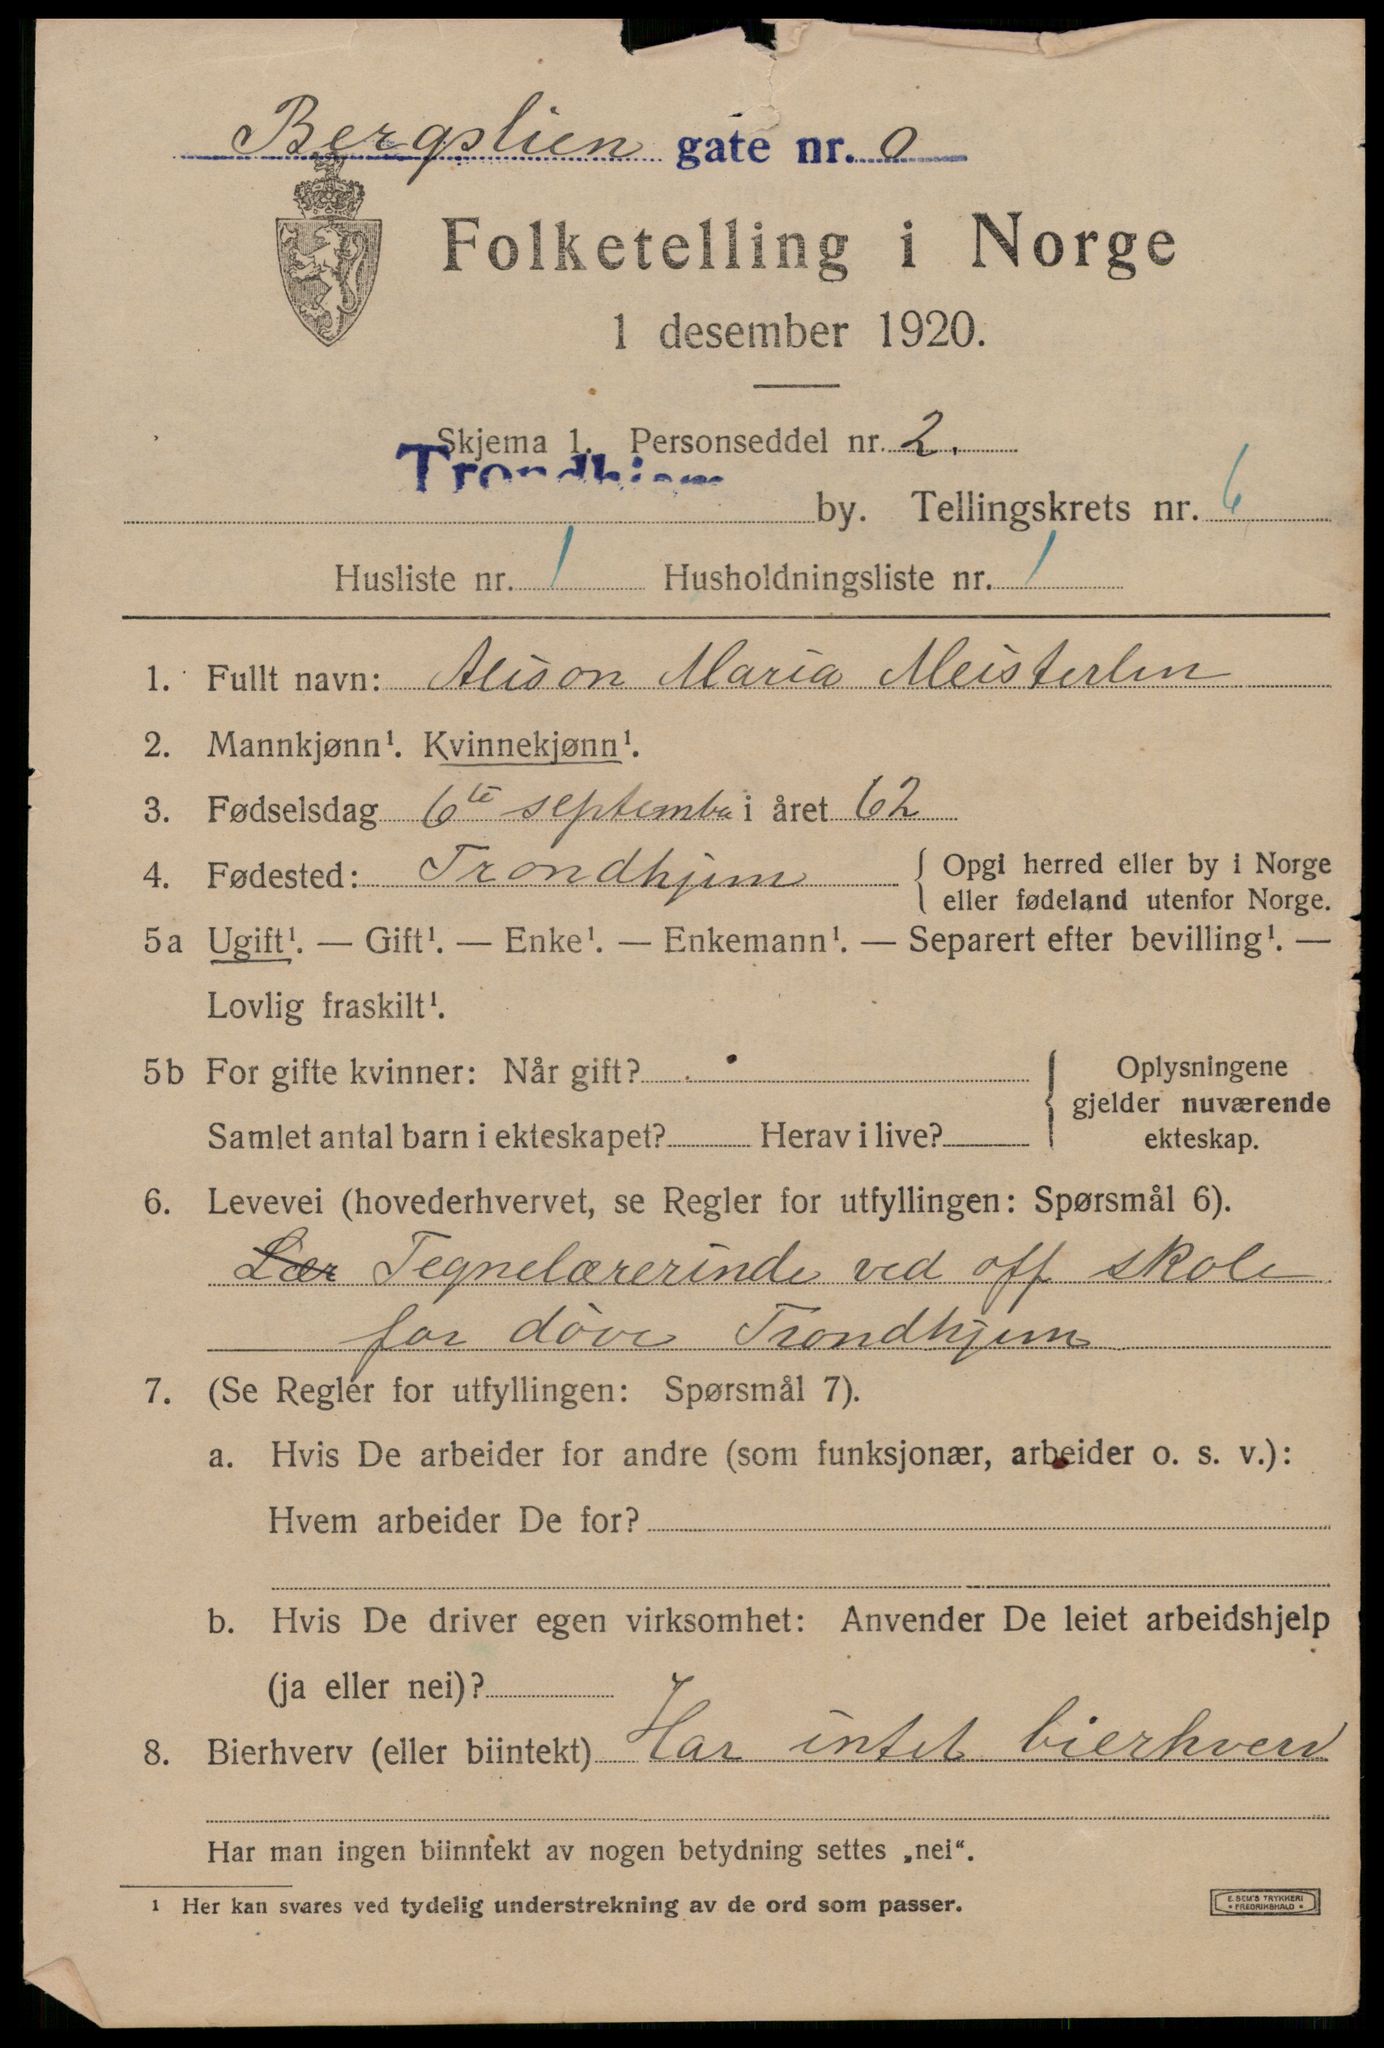 Bergslien gate nr. 0
Folketelling i Norge
1 desember 1920.
Skjema 1. Personseddel nr. 2.
Trondhjem by. Tellingskrets nr. 6
Husliste nr. 1 Husholdningsliste nr. 1
1. Fullt navn: Alison Maria Meisterlin
2. Mannkjønn¹. Kvinnekjønn¹.
3. Fødselsdag 6te september i året 62
4. Fødested: Trondhjem { Opgi herred eller by i Norge
eller fødeland utenfor Norge.
5a Ugift¹. — Gift¹. — Enke¹. — Enkemann¹. — Separert efter bevilling¹. —
Lovlig fraskilt¹.
5b For gifte kvinner: Når gift? { Oplysningene
gjelder nuværende
Samlet antal barn i ekteskapet? Herav i live? ekteskap.
6. Levevei (hovederhvervet, se Regler for utfyllingen: Spørsmål 6).
Lær Tegnelærerinde ved off skole
for døve Trondhjem
7. (Se Regler for utfyllingen: Spørsmål 7).
a. Hvis De arbeider for andre (som funksjonær, arbeider o. s. v.):
Hvem arbeider De for?
b. Hvis De driver egen virksomhet: Anvender De leiet arbeidshjelp
(ja eller nei)?
8. Bierhverv (eller biintekt) Har intet bierhverv
Har man ingen biinntekt av nogen betydning settes „nei“.
¹ Her kan svares ved tydelig understrekning av de ord som passer.
E. SEM'S TRYKKERI
* FREDRIKSHALD *